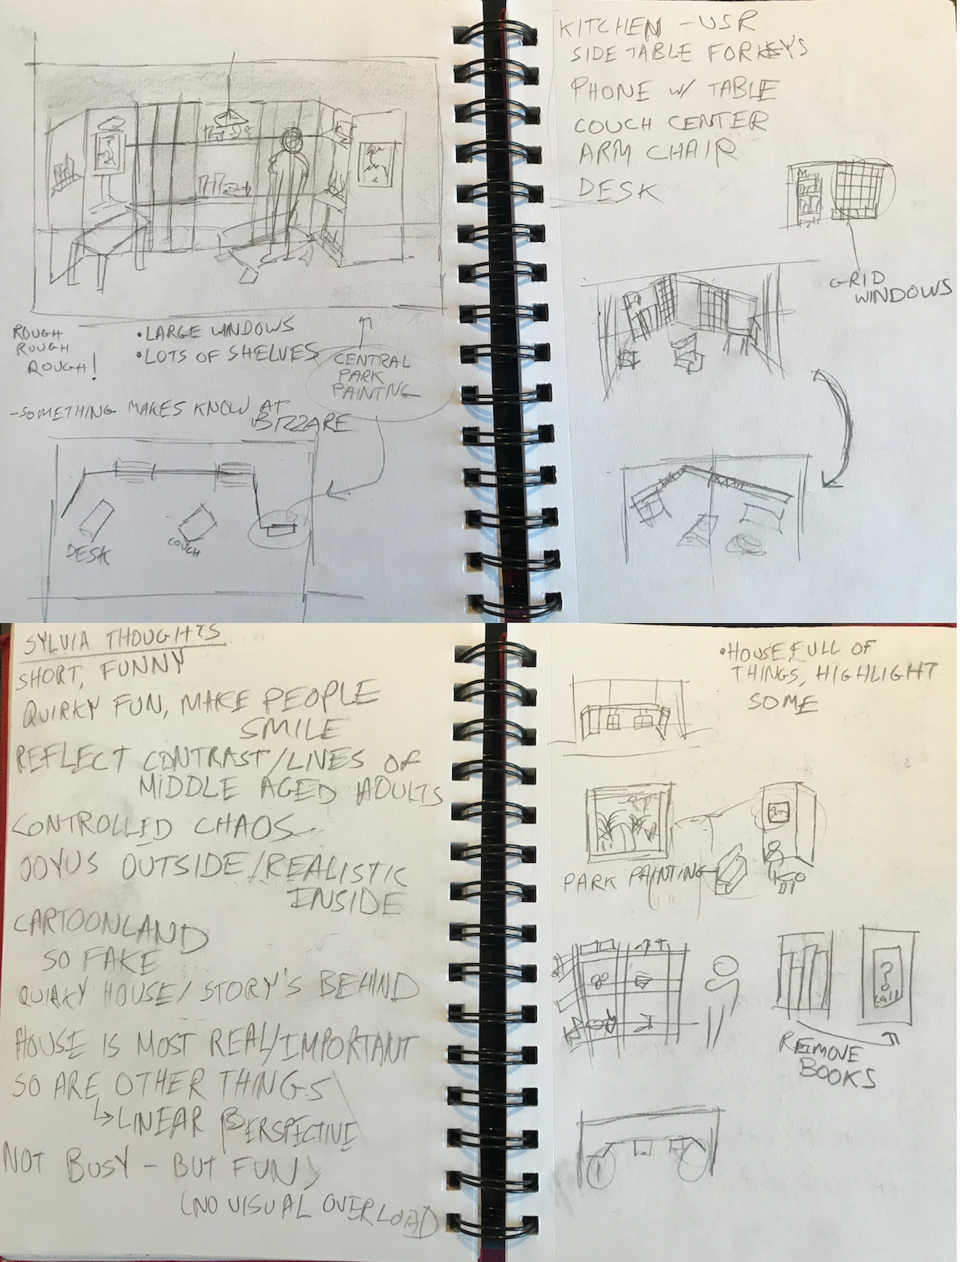 ROUGH
ROUGH
ROUGH!
• LARGE WINDOWS
• LOTS OF SHELVES
CENTRAL
PARK
PAINTING
-SOMETHING MAKES KNOW AT
BIZZARE
DESK
COUCH
KITCHEN - USR
SIDE TABLE FOR KEYS
PHONE W/ TABLE
COUCH CENTER
ARM CHAIR
DESK
GRID
WINDOWS
SYLVIA THOUGHTS
SHORT, FUNNY
QUIRKY FUN, MAKE PEOPLE
SMILE
REFLECT CONTRAST/LIVES OF
MIDDLE AGED ADULTS
CONTROLLED CHAOS
JOYUS OUTSIDE/REALISTIC
INSIDE
CARTOONLAND
SO FAKE
QUIRKY HOUSE/ STORY'S BEHIND
HOUSE IS MOST REAL/IMPORTANT
SO ARE OTHER THINGS
↳ LINEAR PERSPECTIVE
NOT BUSY - BUT FUN
(NO VISUAL OVERLOAD
• HOUSE FULL OF
THINGS, HIGHLIGHT
SOME
PARK PAINTING
?
REMOVE
BOOKS